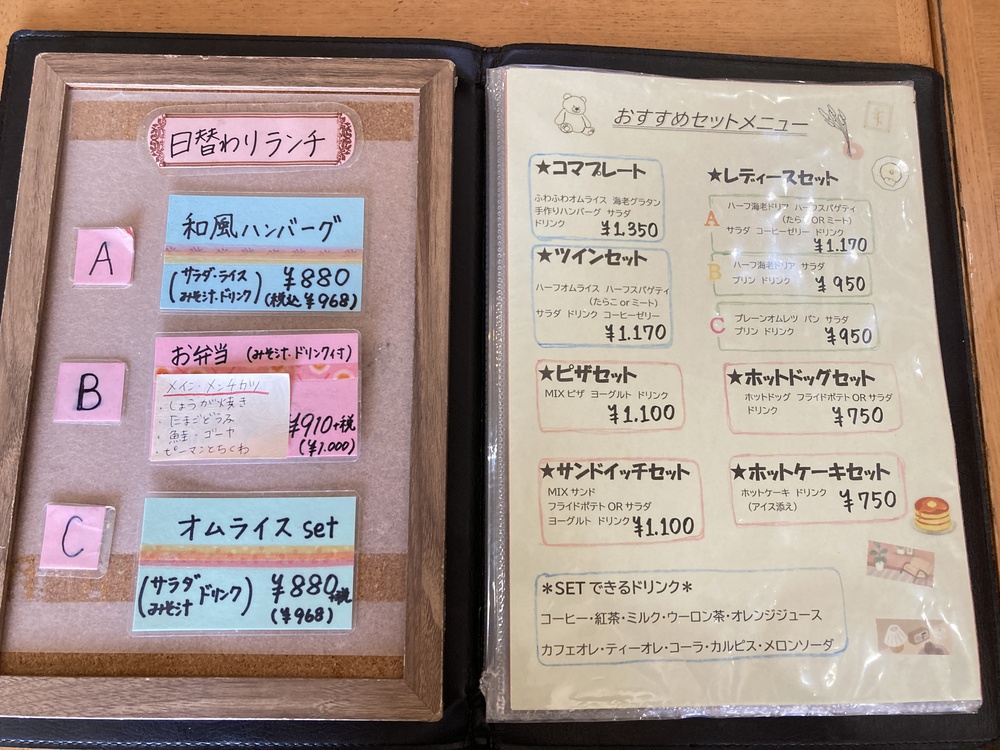 日替わりランチ
A
和風ハンバーグ
(サラダ・ライス
みそ汁・ドリンク)
¥880
(税込¥968)
B
お弁当 (みそ汁・ドリンク付)
メイン・メンチカツ
・しょうが焼き
・たまごどうふ
・鮭・ゴーヤ
・ピーマンとちくわ
¥910+税
(¥1.000)
C
オムライス set
(サラダ ドリンク)
みそ汁
¥880+税
(¥968)
おすすめセットメニュー
★コマプレート
ふわふわオムライス 海老グラタン
手作りハンバーグ サラダ
ドリンク
¥1.350
★ツインセット
ハーフオムライス ハーフスパゲティ
(たらこorミート)
サラダ ドリンク コーヒーゼリー
¥1.170
★ピザセット
MIXピザ ヨーグルト ドリンク
¥1.100
★サンドイッチセット
MIXサンド
フライドポテトORサラダ
ヨーグルト ドリンク
¥1.100
★レディースセット
A
ハーフ海老ドリア ハーフスパゲティ
(たらこORミート)
サラダ コーヒーゼリー ドリンク
¥1.170
B
ハーフ海老ドリア サラダ
プリン ドリンク
¥950
C
プレーンオムレツ パン サラダ
プリン ドリンク
¥950
★ホットドッグセット
ホットドッグ フライドポテトORサラダ
ドリンク
¥750
★ホットケーキセット
ホットケーキ ドリンク
(アイス添え)
¥750
*SETできるドリンク*
コーヒー・紅茶・ミルク・ウーロン茶・オレンジジュース
カフェオレ・ティーオレ・コーラ・カルピス・メロンソーダ